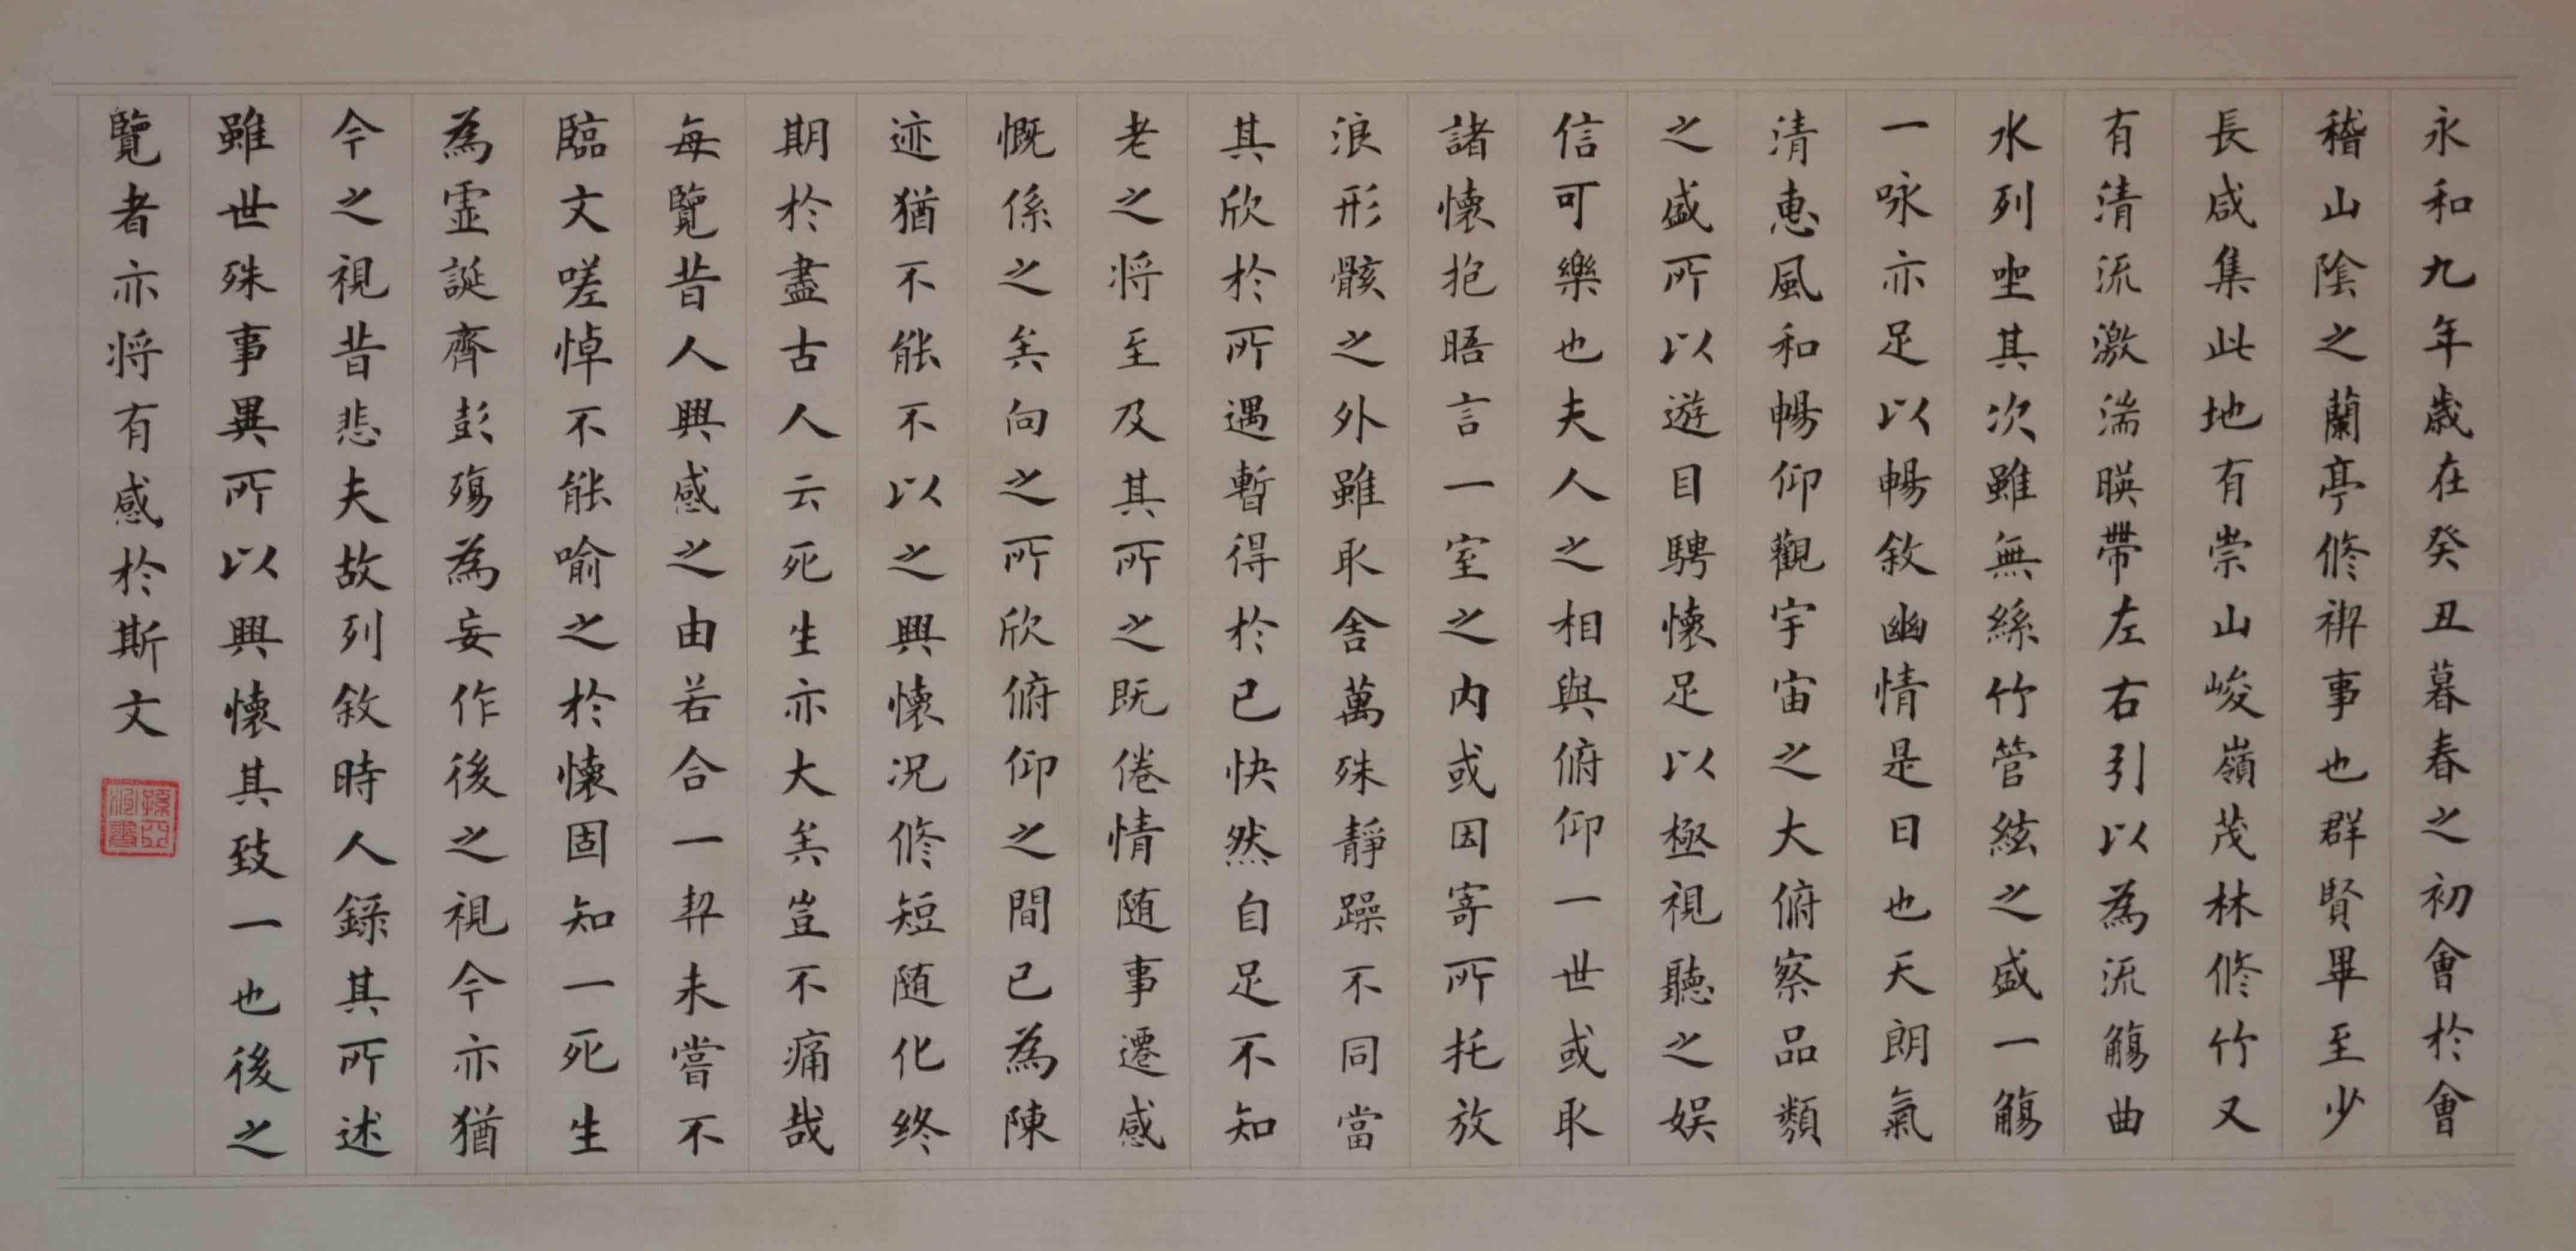 永和九年歲在癸丑暮春之初會於會
稽山陰之蘭亭修禊事也群賢畢至少
長咸集此地有崇山峻嶺茂林修竹又
有清流激湍暎帶左右引以為流觴曲
水列坐其次雖無絲竹管絃之盛一觴
一咏亦足以暢敘幽情是日也天朗氣
清惠風和暢仰觀宇宙之大俯察品類
之盛所以遊目騁懷足以極視聽之娱
信可樂也夫人之相與俯仰一世或取
諸懷抱晤言一室之內或因寄所托放
浪形骸之外雖取舍萬殊靜躁不同當
其欣於所遇暫得於己快然自足不知
老之将至及其所之既倦情随事遷感
慨係之矣向之所欣俯仰之間已為陳
迹猶不能不以之興懷况修短随化终
期於盡古人云死生亦大矣豈不痛哉
每覽昔人興感之由若合一契未嘗不
臨文嗟悼不能喻之於懷固知一死生
為虛誕齊彭殤為妄作後之視今亦猶
今之視昔悲夫故列敘時人錄其所述
雖世殊事異所以興懷其致一也後之
覽者亦将有感於斯文